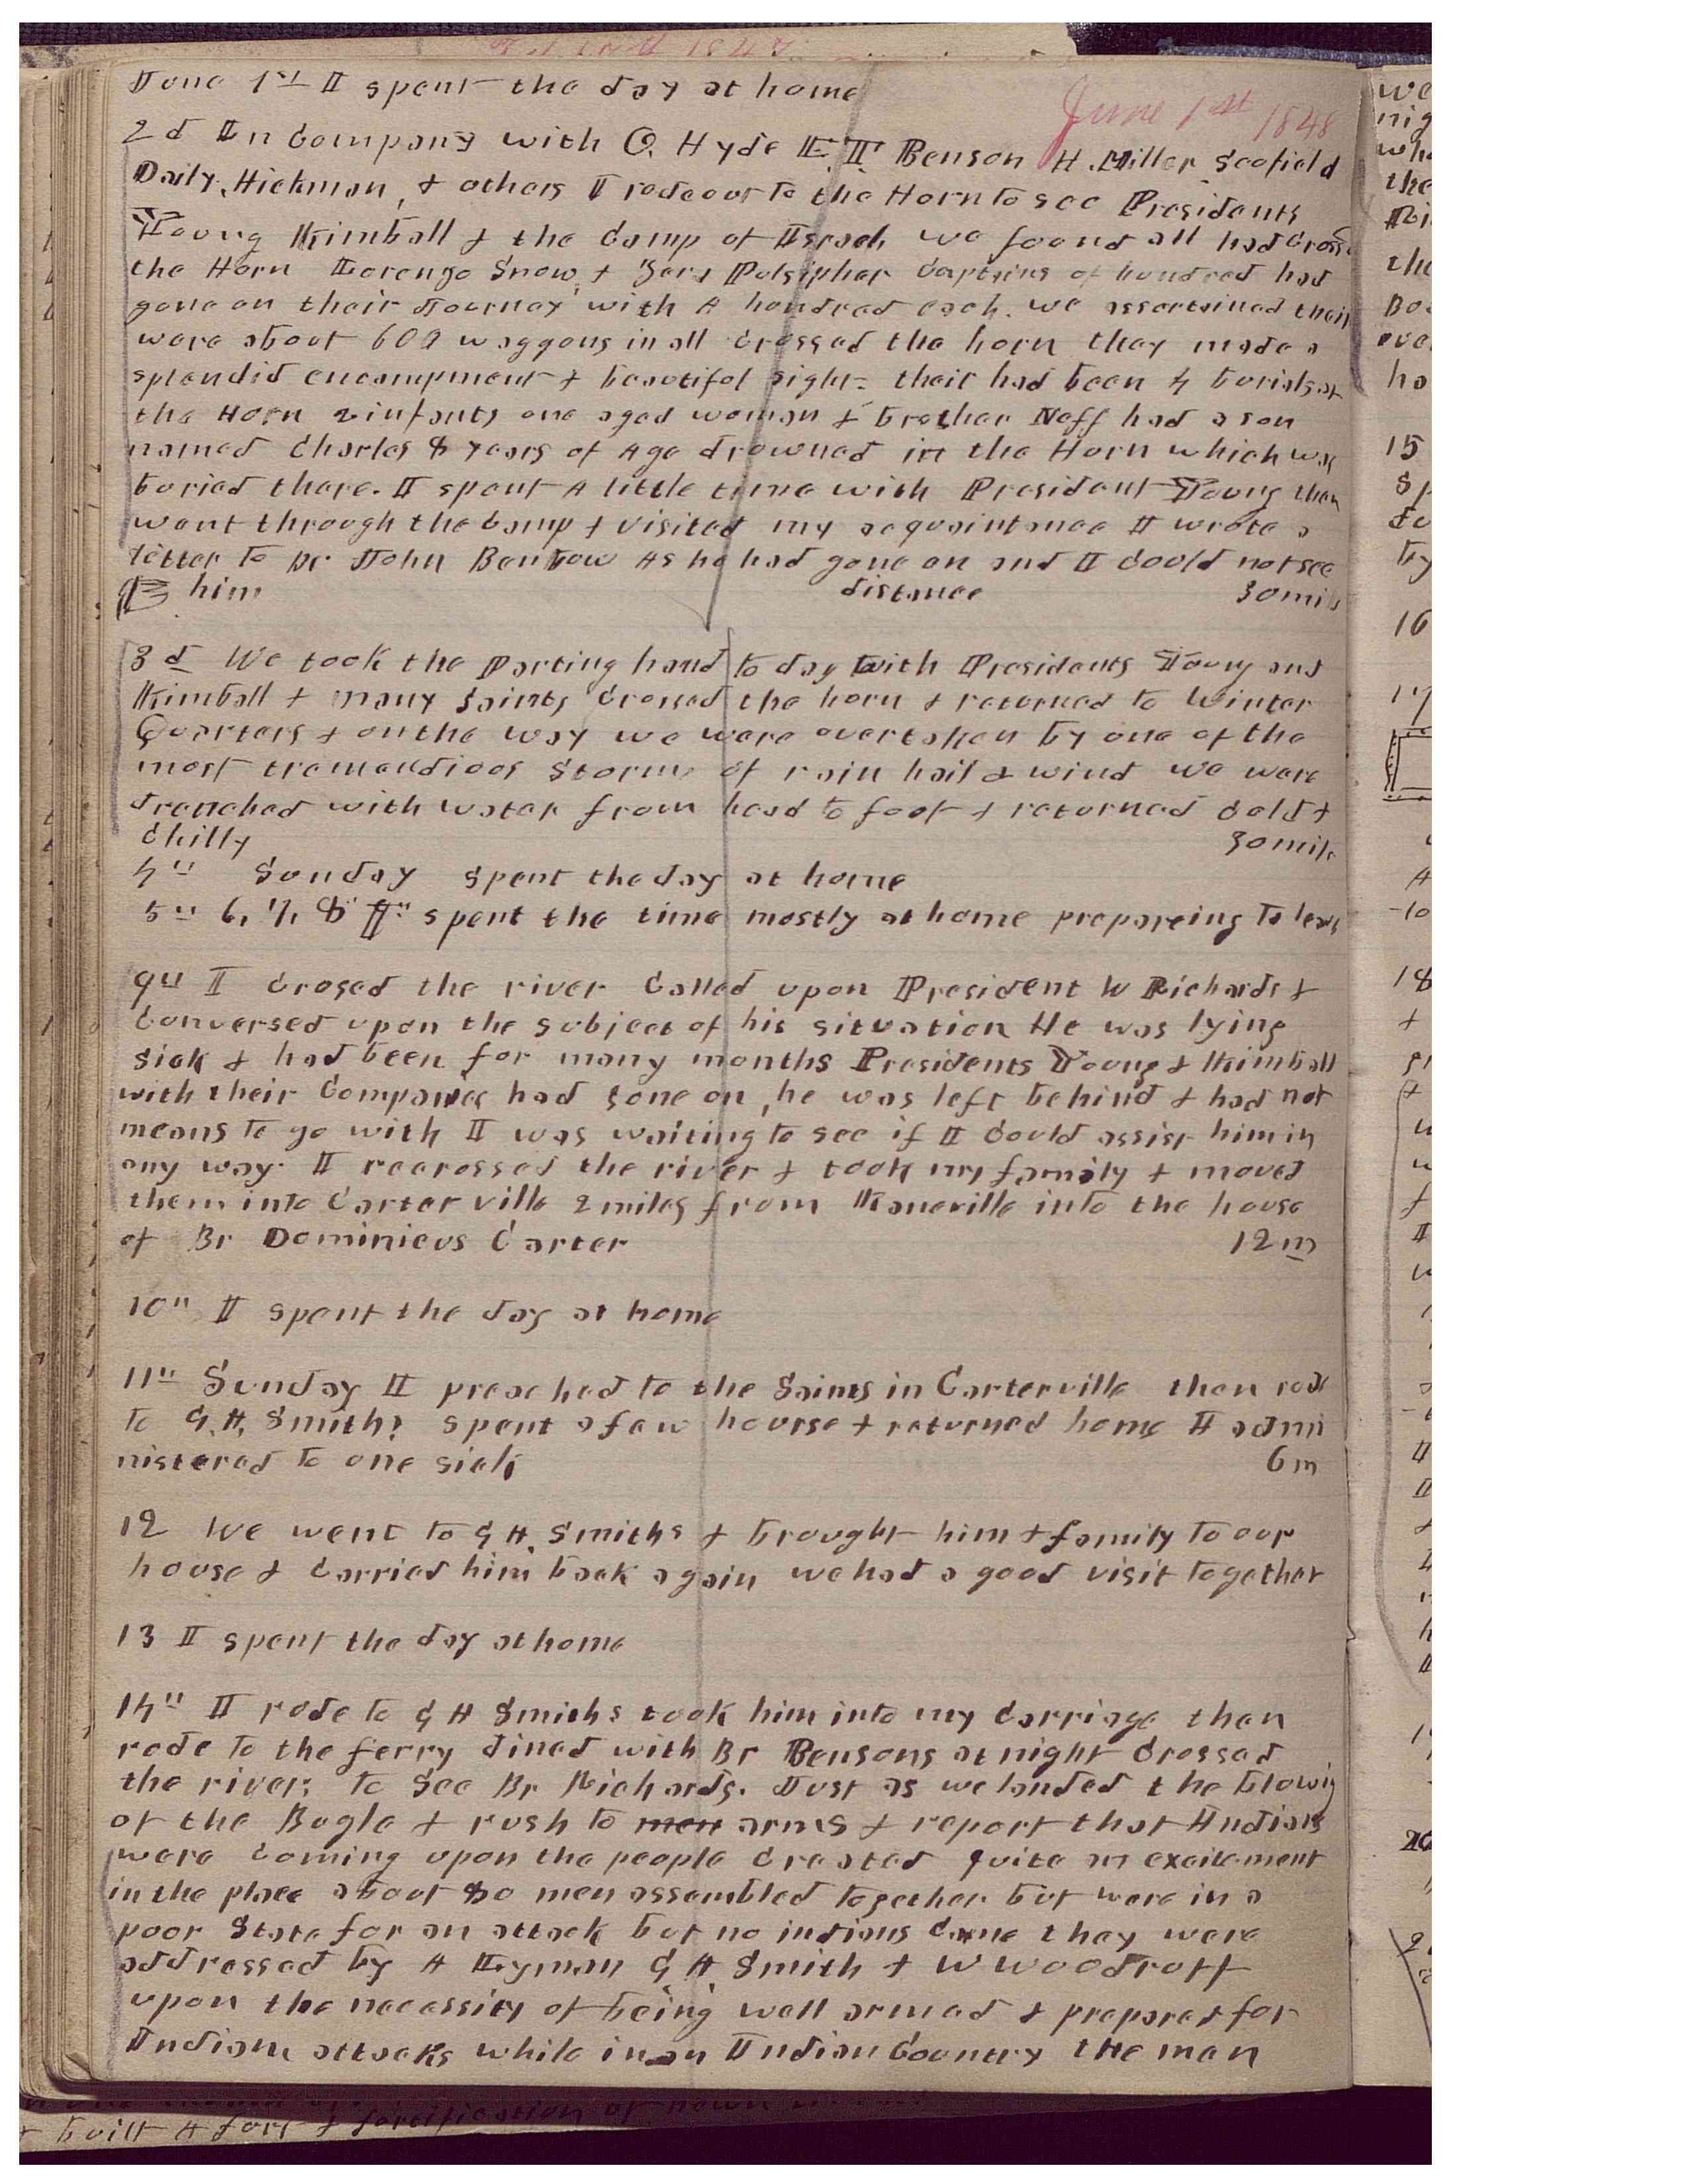 June 1st I spent the day at home
June 1st 1848
2d In Company with O. Hyde E. T. Benson H. Miller Scofield
Daily, Hickman, & others I rode out to the Horn to see Presidents
Young Kimball & the Camp of Israel we found all had Cross
the Horn Lorenzo Snow, & Zera Pulsipher Captains of hundred had
gone on their Journey with A hundred each. we assertained their
were about 600 waggons in all Crossed the horn they made a
splendid encampment & beautiful sight. their had been 4 burials at
the Horn 2 infants one aged woman & brother Neff had a son
named Charles 8 years of Age drowned in the Horn which was
buried there. I spent A little time with President Young then
went through the Camp & visited my acquaintance I wrote a
letter to Br John Benbow As he had gone on and I Could not see
him distance 30 mils
3d We took the Parting hand to day with Presidents Young and
Kimball & many Saints Crossed the horn & returned to Winter
Quarters & on the way we were overtaken by one of the
most tremendious Storms of rain hail & wind we were
drenched with water from head to foot & returned Cold &
Chilly 30 mils
4th Sunday spent the day at home
5th 6, 7, 8th spent the time mostly at home prepareing to leave
9th I Crosed the river Called upon President W Richards &
Conversed upon the subject of his situation He was lying
Sick & had been for many months Presidents Young & Kimball
with their Companies had gone on, he was left behind & had not
means to go with I was waiting to see if I Could assist him in
any way. I recrossed the river & took my family & moved
them into Carterville 2 miles from Kaneville into the house
of Br Dominicus Carter 12 m
10th I spent the day at home
11th Sunday I preached to the Saints in Carterville then rode
to G. A. Smiths spent a few hourse & returned home I admi
nistered to one sick 6 m
12 We went to G A. Smiths & brought him & family to our
house & Carried him back again we had a good visit together
13 I spent the day at home
14th I rode to G A Smiths took him into my Carriage then
rode to the ferry dined with Br Bensons at night Crossed
the river; to See Br Richards. Just as we landed the blowig
of the Bugle & rush to men arms & report that Indians
were Coming upon the people Created quite an excitement
in the place about 80 men assembled together but were in a
poor State for an attack but no indians Came they were
addressed by A Lyman G A. Smith & W Woodruff
upon the necessity of being well armed & prepared for
Indians attacks while in an Indian Country the man